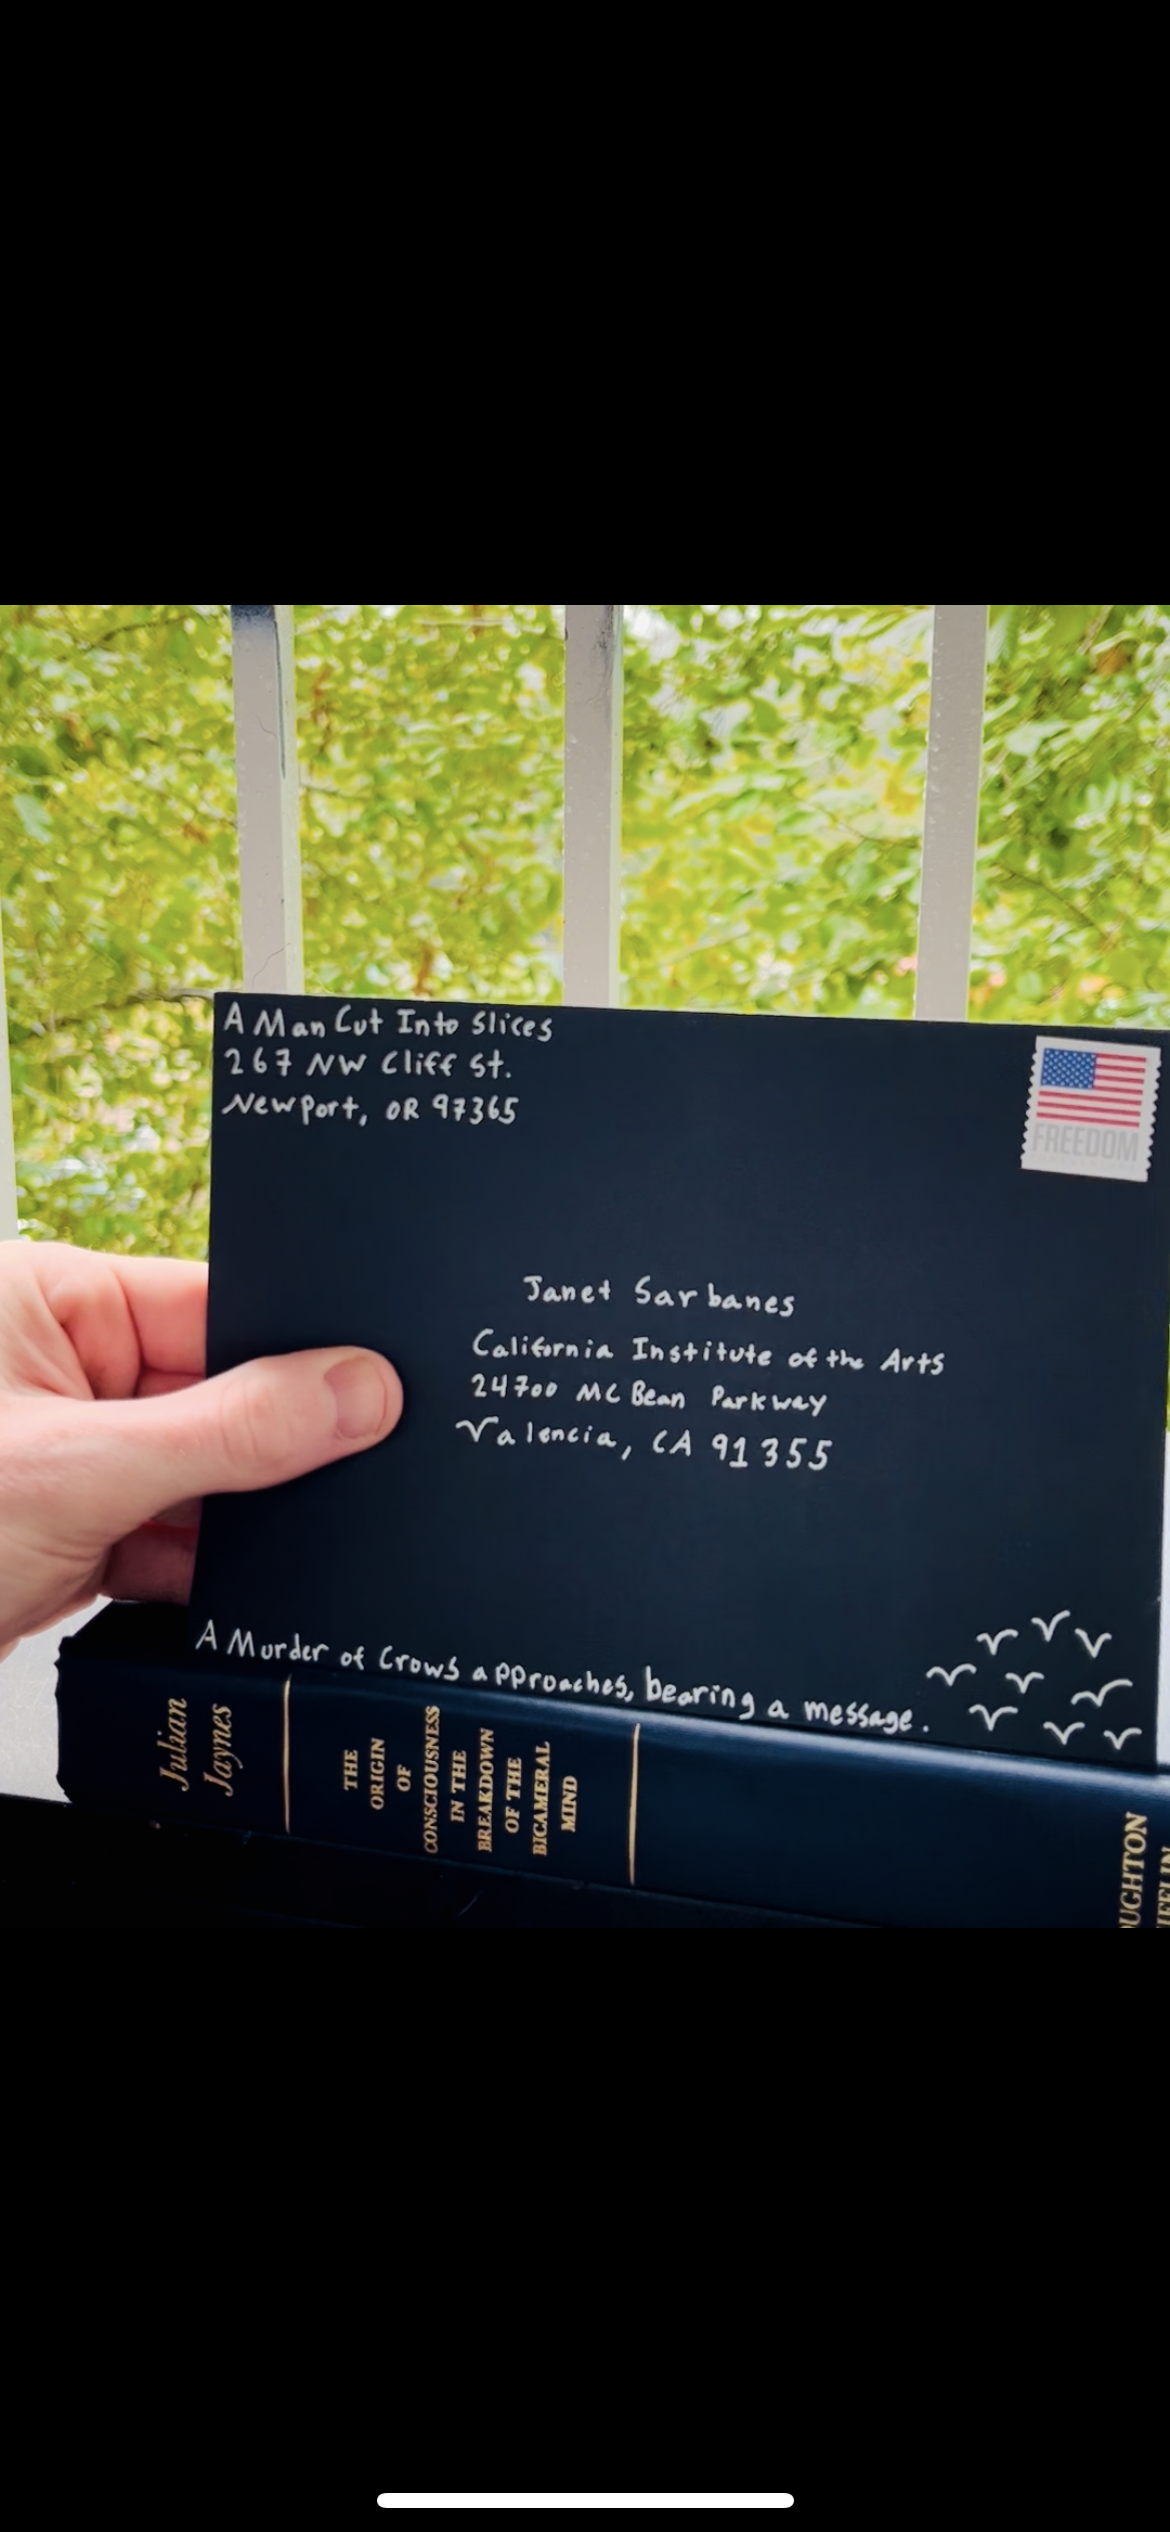 A Man Cut Into Slices
267 NW Cliff St.
Newport, OR 97365
FREEDOM
Janet Sarbanes
California Institute of the Arts
24700 McBean Parkway
Valencia, CA 91355
A Murder of Crows approaches, bearing a message.
Julian
Jaynes
THE
ORIGIN
OF
CONSCIOUSNESS
IN THE
BREAKDOWN
OF THE
BICAMERAL
MIND
OUGHTON
IFFLIN